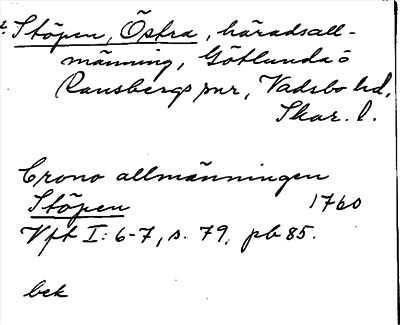 Stöpen, Östra, häradsall-
männing, Götlunda o
Ransbergs snr, Vadsbo hd,
Skar. l.
Crono allmänningen
Stöpen 1760
Vft I: 6-7, s. 79, pb 85.
bek